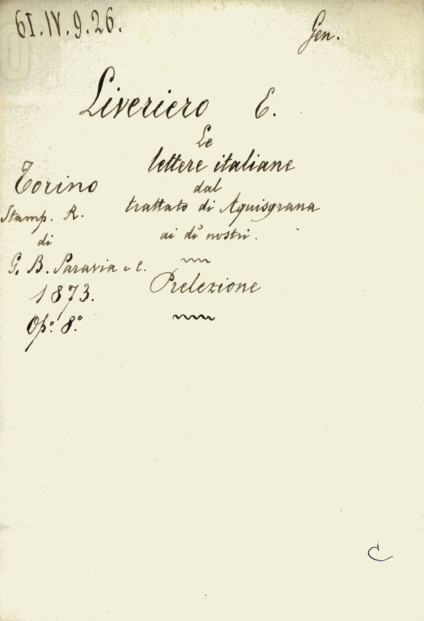 61.IV.9.26.
Gen.
Liveriero E.
Le
lettere italiane
dal
trattato di Aquisgrana
ai dì nostri.
Prelezione
Torino
Stamp. R.
di
G. B. Paravia e C.
1873.
Op.° 8.°
C